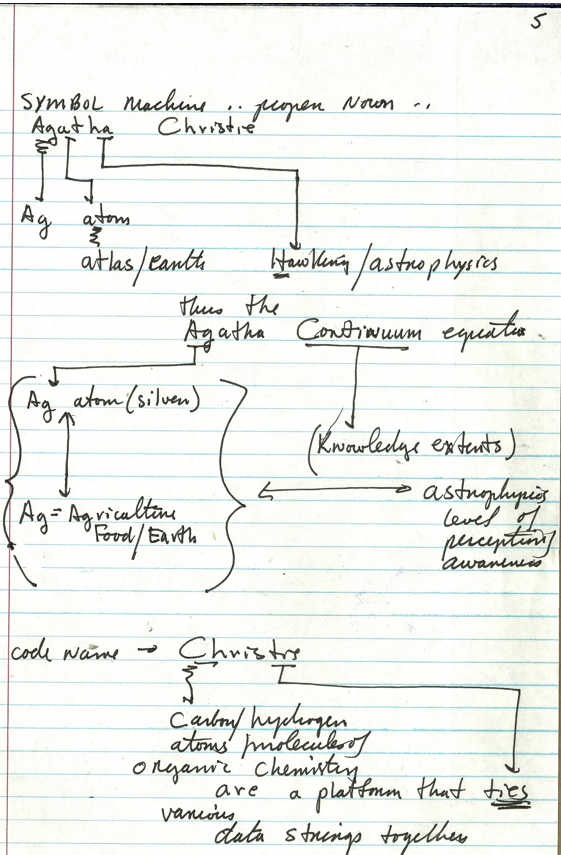 5
SYMBOL machine .. proper Noun ..
Agatha Christie
Ag atom
atlas/Earth Hawking/astrophysics
thus the
Agatha Continuum equation
Ag atom (silver)
(Knowledge extents)
astrophysics
Ag = Agriculture level of
Food/Earth perception/
awareness
code name → Christie
Carbon/hydrogen
atoms/molecules of
organic chemistry
are a platform that ties
various
data strings together